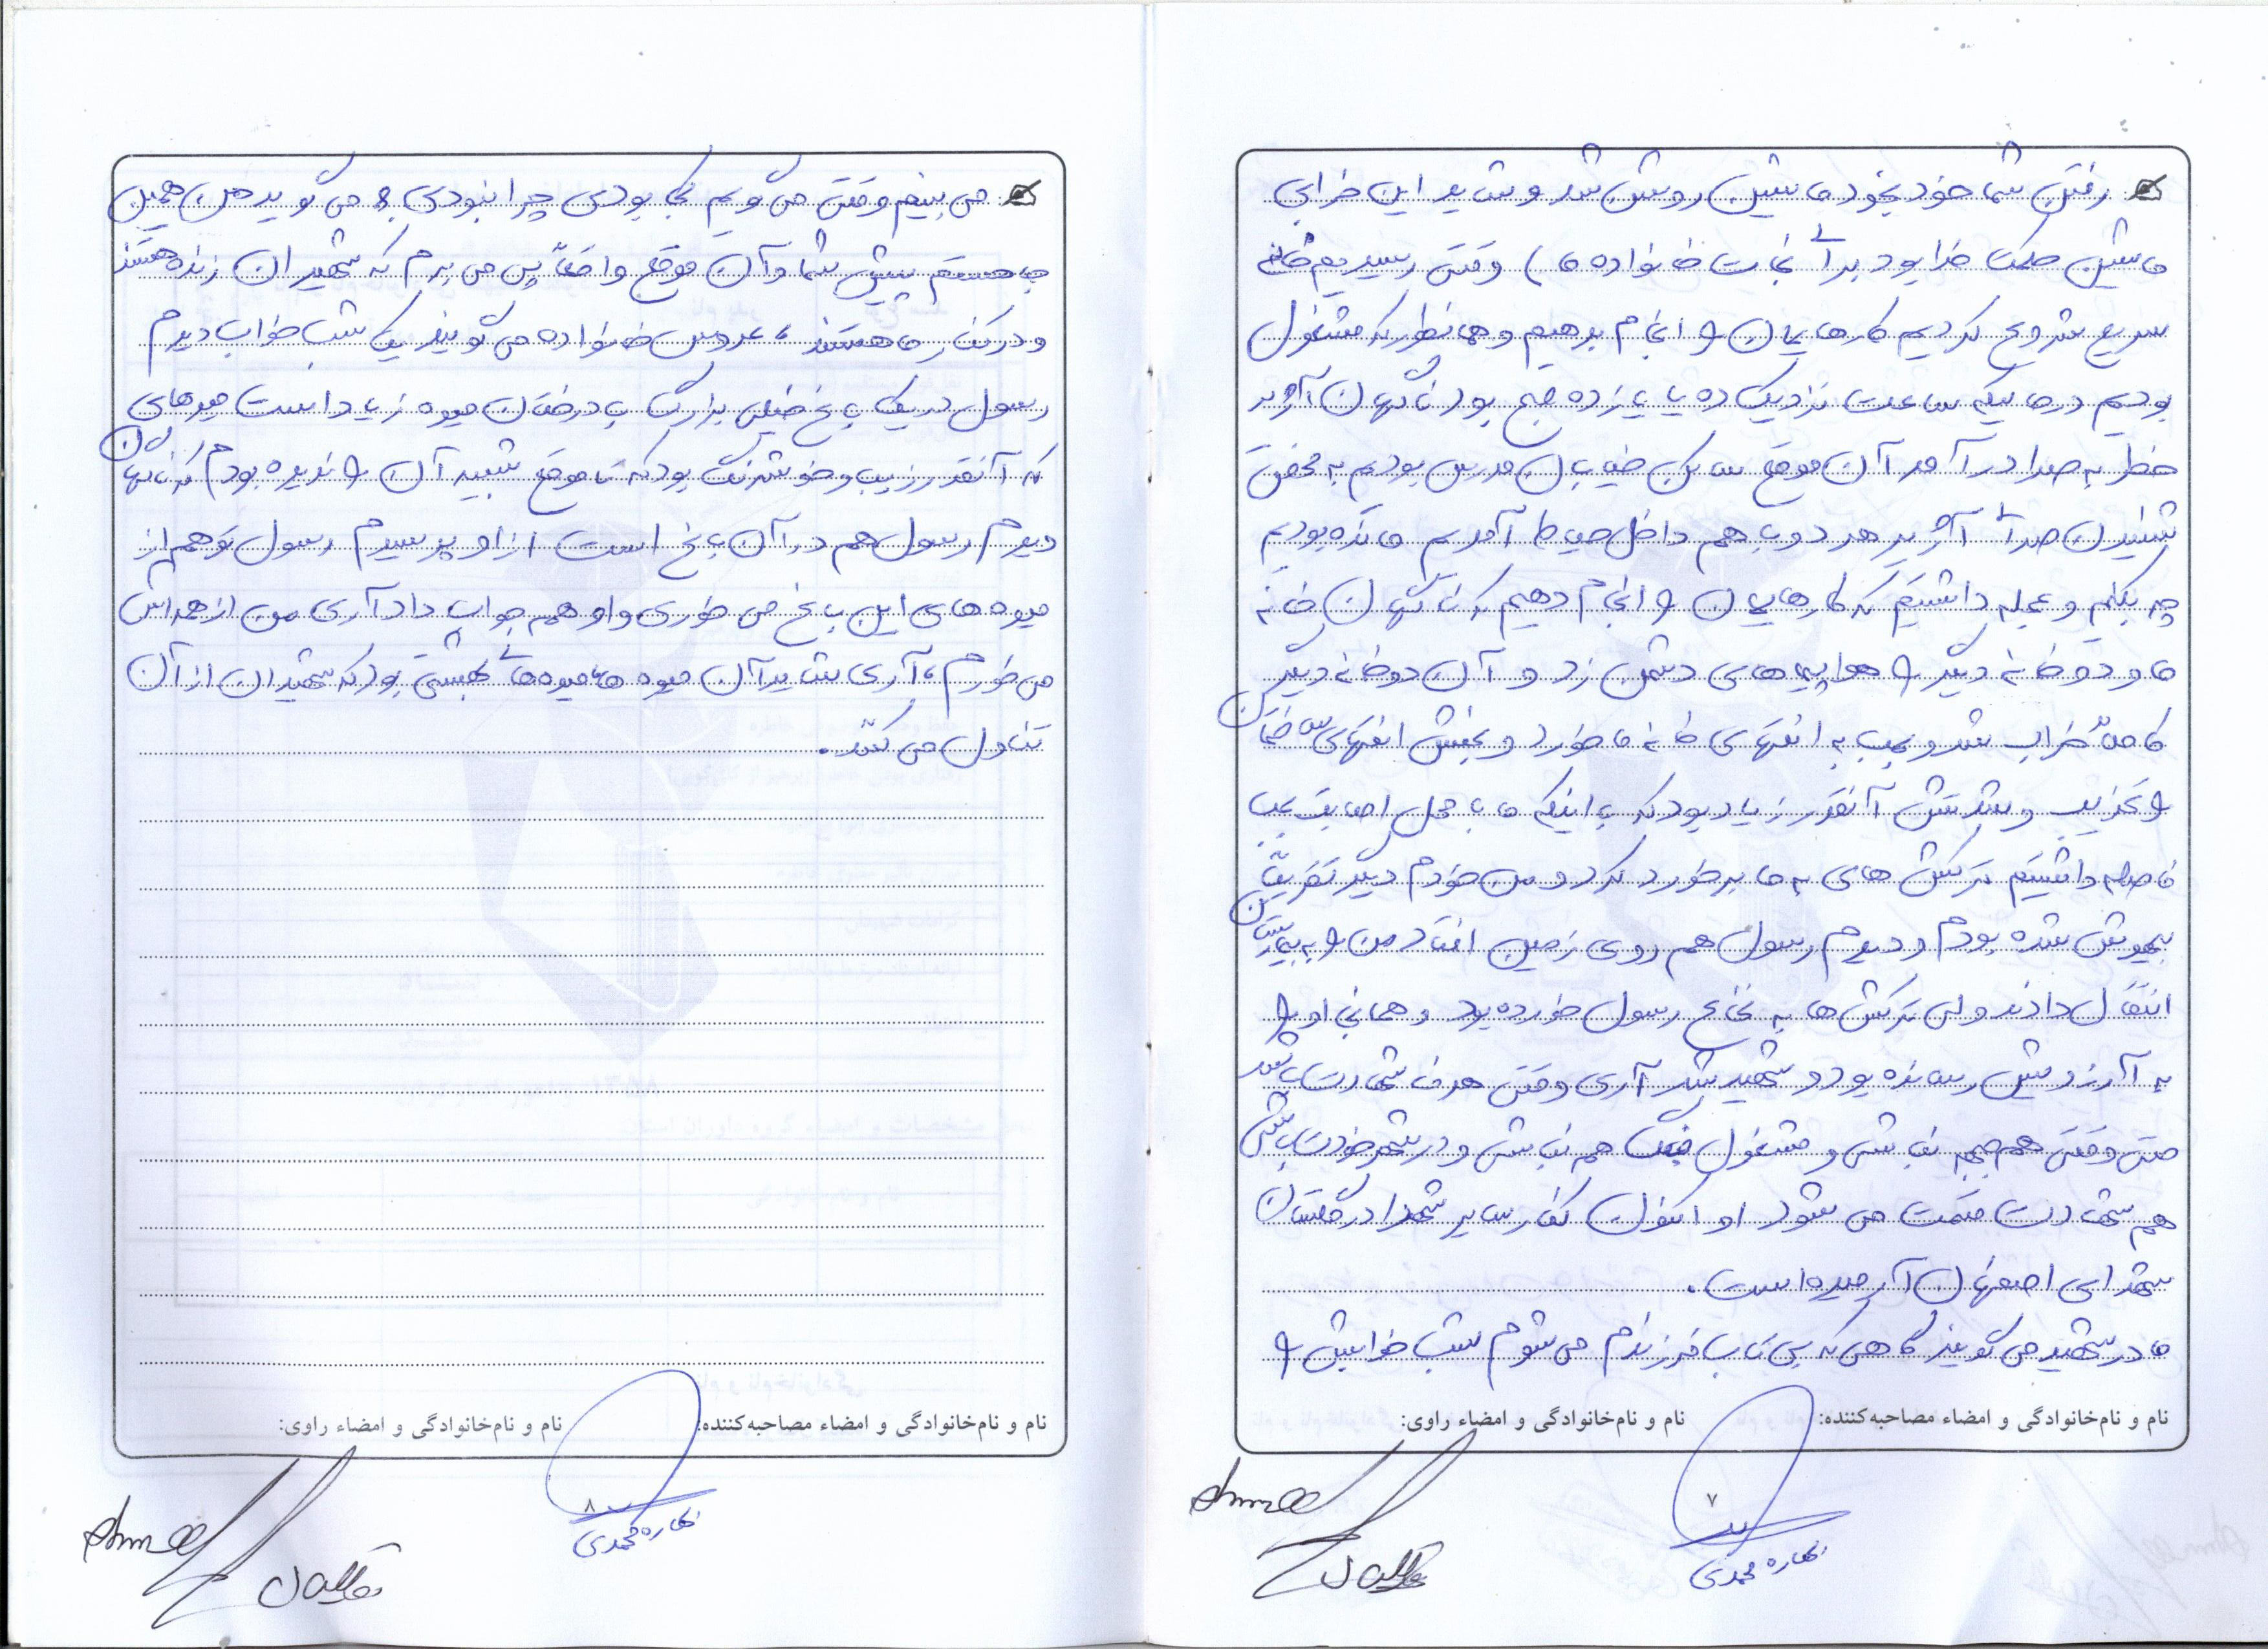 رفتن شما خود بخود ماشین روشن شد و شاید این خرابی
ماشین حکمت خدا بود برای نجات خانواده ما) وقتی رسیدیم خانه
سریع شروع کردیم کارهایمان را انجام بدهیم و همانطور که مشغول
بودیم درحالیکه ساعت نزدیک ده یا یازده صبح بود ناگهان آژیر
خطر به صدا در آمد آن موقع ساکن خیابان مدرس بودیم به محض
شنیدن صدای آژیر هر دو با هم داخل حیاط آمدیم مانده بودیم
چه بکنیم و عجله داشتیم که کارهایمان را انجام دهیم که ناگهان خانه
ما و دو خانه دیگر را هواپیماهای دشمن زد و آن دو خانه دیگر
کاملاً خراب شد و بمب به انتهای خانه ما خورد و بخش انتهای ساختمان
را تخریب و شدتش آنقدر زیاد بود که با اینکه ما با محل اصابت بمب
فاصله داشتیم ترکش های به ما برخورد کرد و من خودم دیگر تقریباً
بیهوش شده بودم و دیدم رسول هم روی زمین افتاد من را به بیمارستان
انتقال دادند ولی ترکش ها به نخاع رسول خورده بود و همانجا او را
به آرزویش رسانده بود و شهید شد آری وقتی هدف شهادت باشد
حتی وقتی هم جبهه نباشی و مشغول جنگ هم نباشی و در شهر خودت باشی
هم شهادت قسمت می شود او اکنون کنار سایر شهدا در گلستان
شهدای اصفهان آرمیده است.
مادر شهید می گویند گاهی که بی تاب فرزندم می شوم شب خوابش را
نام و نام‌خانوادگی و امضاء مصاحبه‌کننده: نام و نام‌خانوادگی و امضاء راوی:
۷
بهاره محمدی
می بینم وقتی می گویم کجا بودی چرا نبودی؟ می گوید من همین
جا هستم پیش شما و آن موقع واقعاً پی می برم که شهیدان زنده هستند
و در کنار ما هستند، عروس خانواده می گویند یک شب خواب دیدم
رسول در یک باغ خیلی بزرگ با درختان میوه زیاد است میوهای
که آنقدر زیبا و خوشرنگ بود که تا موقع شبیه آن را ندیده بودم که ناگهان
دیدم رسول هم در آن باغ است از او پرسیدم رسول تو هم از
میوه های این باغ می خوری و او هم جواب داد آری من از همه اش
می خورم، آری شاید آن میوه ها میوه های بهشتی بود که شهیدان از آن
تناول می کنند.
نام و نام‌خانوادگی و امضاء مصاحبه‌کننده: نام و نام‌خانوادگی و امضاء راوی:
۸
بهاره محمدی